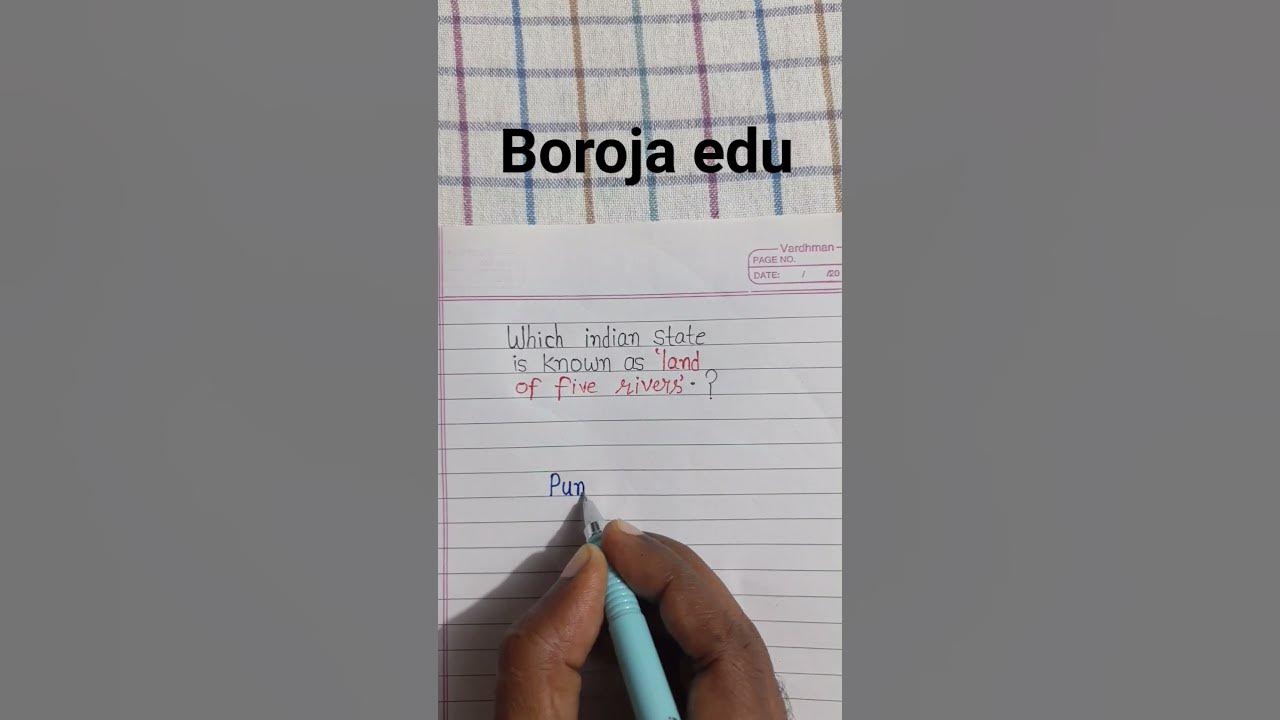 Boroja edu
Vardhman
PAGE NO.
DATE: / /20
Which indian state
is known as 'land
of five rivers'. ?
Pun